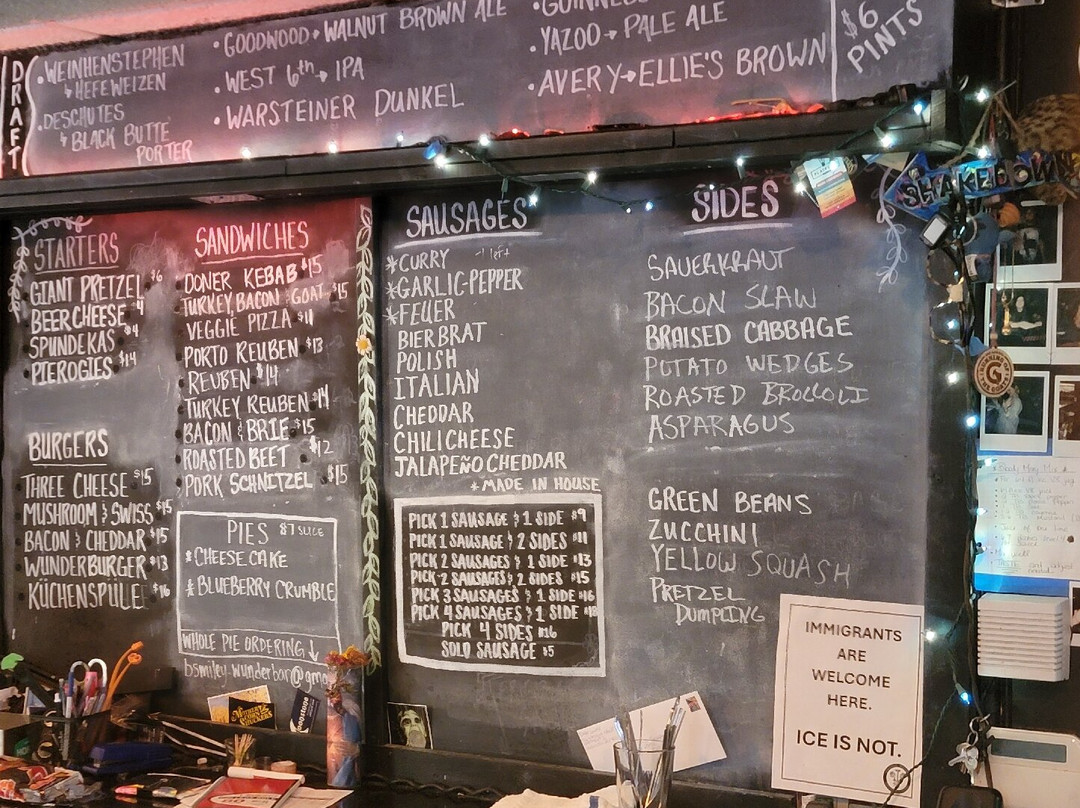 DRAFT
• WEINHENSTEPHEN
↳ HEFEWEIZEN
• DESCHUTES
↳ BLACK BUTTE
PORTER
• GOODWOOD → WALNUT BROWN ALE
• WEST 6th → IPA
• WARSTEINER DUNKEL
• GUINNESS
• YAZOO → PALE ALE
• AVERY → ELLIE'S BROWN
$6
PINTS
STARTERS
GIANT PRETZEL $6
BEER CHEESE $4
SPUNDEKAS $4
PIEROGIES $14
BURGERS
THREE CHEESE $15
MUSHROOM & SWISS $15
BACON & CHEDDAR $15
WUNDERBURGER $13
KÜCHENSPÜLE $16
SANDWICHES
DONER KEBAB $15
TURKEY, BACON & GOAT $15
VEGGIE PIZZA $11
PORTO REUBEN $13
REUBEN $14
TURKEY REUBEN $14
BACON & BRIE $15
ROASTED BEET $12
PORK SCHNITZEL $15
PIES $7 SLICE
* CHEESECAKE
* BLUEBERRY CRUMBLE
WHOLE PIE ORDERING ↓
bsmiley.wunderbar@gma
SAUSAGES
* CURRY - 1 left
* GARLIC-PEPPER
* FEUER
BIERBRAT
POLISH
ITALIAN
CHEDDAR
CHILI CHEESE
JALAPEÑO CHEDDAR
* MADE IN HOUSE
PICK 1 SAUSAGE & 1 SIDE $9
PICK 1 SAUSAGE & 2 SIDES $11
PICK 2 SAUSAGES & 1 SIDE $13
PICK 2 SAUSAGES & 2 SIDES $15
PICK 3 SAUSAGES & 1 SIDE $16
PICK 4 SAUSAGES & 1 SIDE $18
PICK 4 SIDES $16
SOLO SAUSAGE $5
SIDES
SAUERKRAUT
BACON SLAW
BRAISED CABBAGE
POTATO WEDGES
ROASTED BROCCOLI
ASPARAGUS
GREEN BEANS
ZUCCHINI
YELLOW SQUASH
PRETZEL
DUMPLING
IMMIGRANTS
ARE
WELCOME
HERE.
ICE IS NOT.
SHAKEDOWN
G